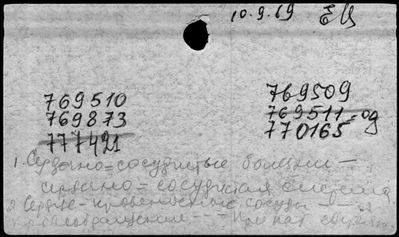 10.9.69 ЕЦ
769510 769509
769873 769511
777421 770165 og
1. Сердечно=сосудистые болезни —
сердечно=сосудистая система
2. Сердце — кровеносные сосуды —